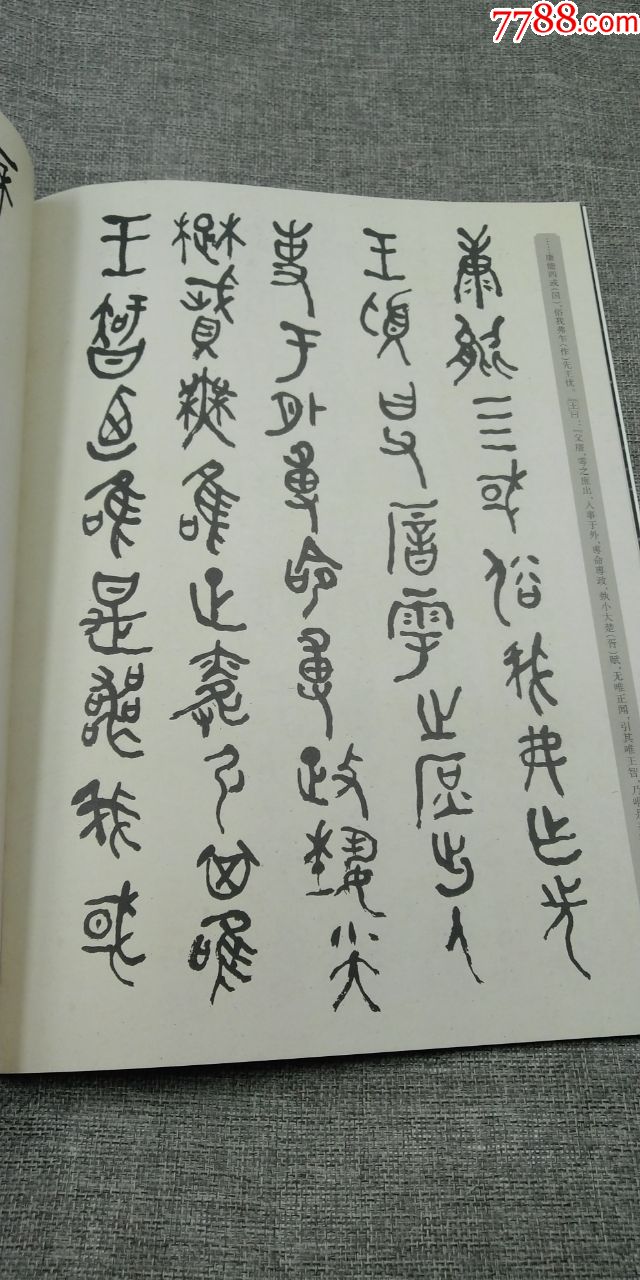 7788.com
……康能四或(国)，俗我弗乍(作)先王忧。」王曰：「父㕣，雩之庶出，入事于外，尃命尃政，埶小大楚(胥)赋，无唯正闻，引其唯王智，乃唯是
康能四或俗我弗乍先
王忧王曰父㕣雩之庶出入
事于外尃命尃政埶小大
楚赋无唯正闻引其唯
王智乃唯是丧我或